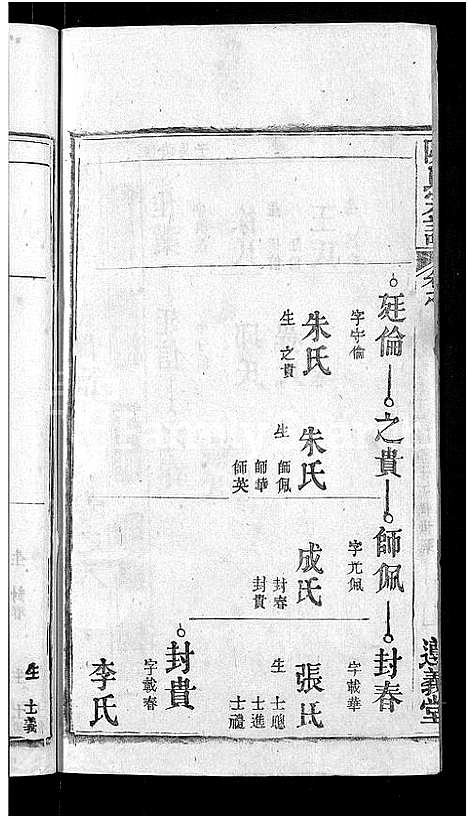 廷倫
字守倫
朱氏
生 之貴
之貴
朱氏
生 師佩
師華
師英
師佩
字尤佩
成氏
封春
封貴
封春
字載華
張氏
生 士聰
士進
士禮
封貴
字載春
李氏
生 士義
義堂